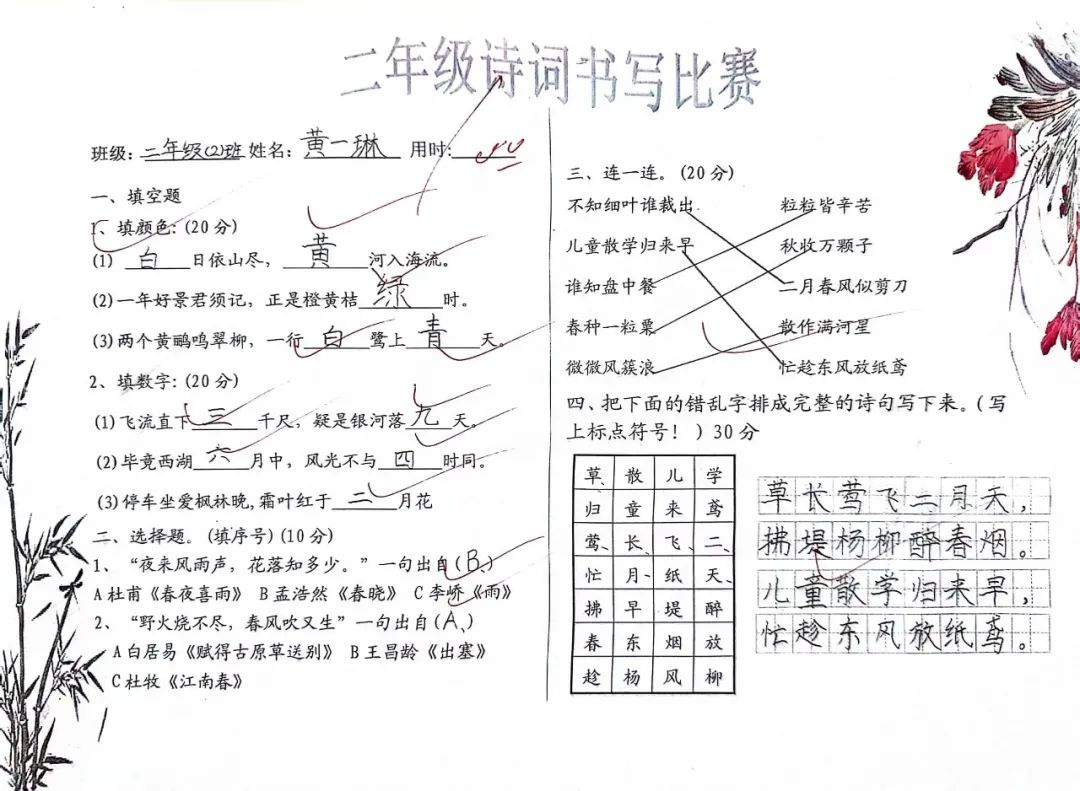 二年级诗词书写比赛
班级:二年级(2)班 姓名:黄一琳 用时:
一、填空题
1、填颜色:(20分)
(1) 白日依山尽,黄河入海流。
(2)一年好景君须记,正是橙黄桔绿时。
(3)两个黄鹂鸣翠柳,一行白鹭上青天。
2、填数字:(20分)
(1)飞流直下三千尺,疑是银河落九天。
(2)毕竟西湖六月中,风光不与四时同。
(3)停车坐爱枫林晚,霜叶红于二月花
二、选择题。(填序号)(10分)
1、“夜来风雨声,花落知多少。”一句出自(B、)
A杜甫《春夜喜雨》 B孟浩然《春晓》 C李峤《雨》
2、“野火烧不尽,春风吹又生”一句出自(A、)
A白居易《赋得古原草送别》 B王昌龄《出塞》
C杜牧《江南春》
三、连一连。(20分)
不知细叶谁裁出 粒粒皆辛苦
儿童散学归来早 秋收万颗子
谁知盘中餐 二月春风似剪刀
春种一粒粟 散作满河星
微微风簇浪 忙趁东风放纸鸢
四、把下面的错乱字排成完整的诗句写下来。(写
上标点符号!)30分
草、 散 儿 学
归 童 来 鸢
莺、 长、 飞、 二、
忙 月、 纸 天、
拂 早 堤 醉
春 东 烟 放
趁 杨 风 柳
草长莺飞二月天,
拂堤杨柳醉春烟。
儿童散学归来早,
忙趁东风放纸鸢。